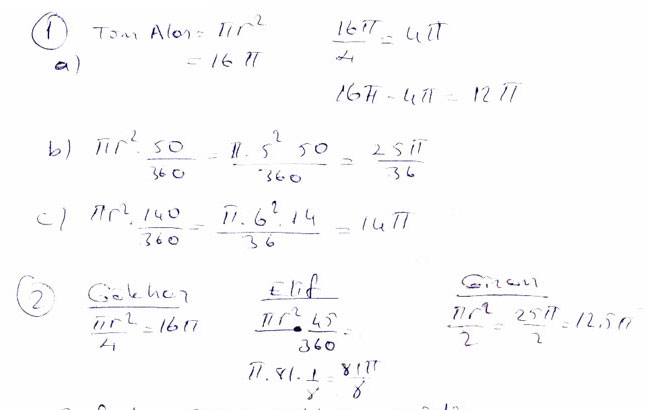 ① Tüm Alan = πr²   16π/4 = 4π
a) = 16π   16π - 4π = 12π
b) πr² · 50/360 = π·5² 50/360 = 25π/36
c) πr² · 140/360 = π·6²·14/36 = 14π
② Gökhan   Elif   Gizem
πr²/4 = 16π   πr² · 45/360 =   πr²/2 = 25π/2 = 12,5π
π·81·1/8 = 81π/8